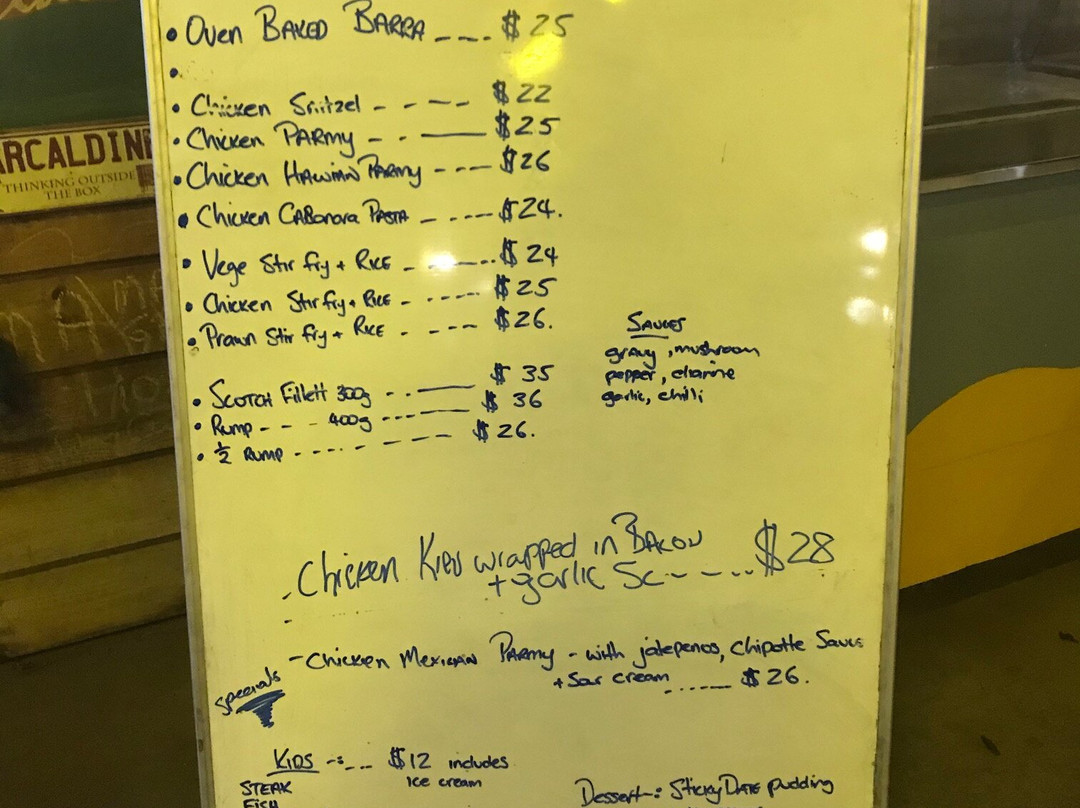 • Oven Baked Barra ---- $25
•
• Chicken Snitzel - - -- - $22
• Chicken Parmy - - -—— $25
• Chicken Hawian Parmy - - -— $26
• Chicken Cabonara Pasta - ----- $24.
• Vege Stir fry + Rice - ------- $24
• Chicken Stir fry + Rice - - ----- $25
• Prawn Stir fry + Rice - - --- $26.
• Scotch Fillett 300g - - -—— $35
• Rump - - - 400g ------- $36
• ½ Rump - - - - - - - - - $26.
Sauces
gravy, mushroom
pepper, dianne
garlic, chilli
. Chicken Kiev wrapped in Bacon
+ garlic Sc - - - .. $28
-
- Chicken Mexican Parmy - with jalepenos, chipotle Sauce
+ Sour cream ...... -- $26.
Specials
Kids -:-- $12 includes
Ice cream
STEAK
FISH
Dessert-: Sticky Date pudding
ARCALDIN
THINKING OUTSIDE
THE BOX